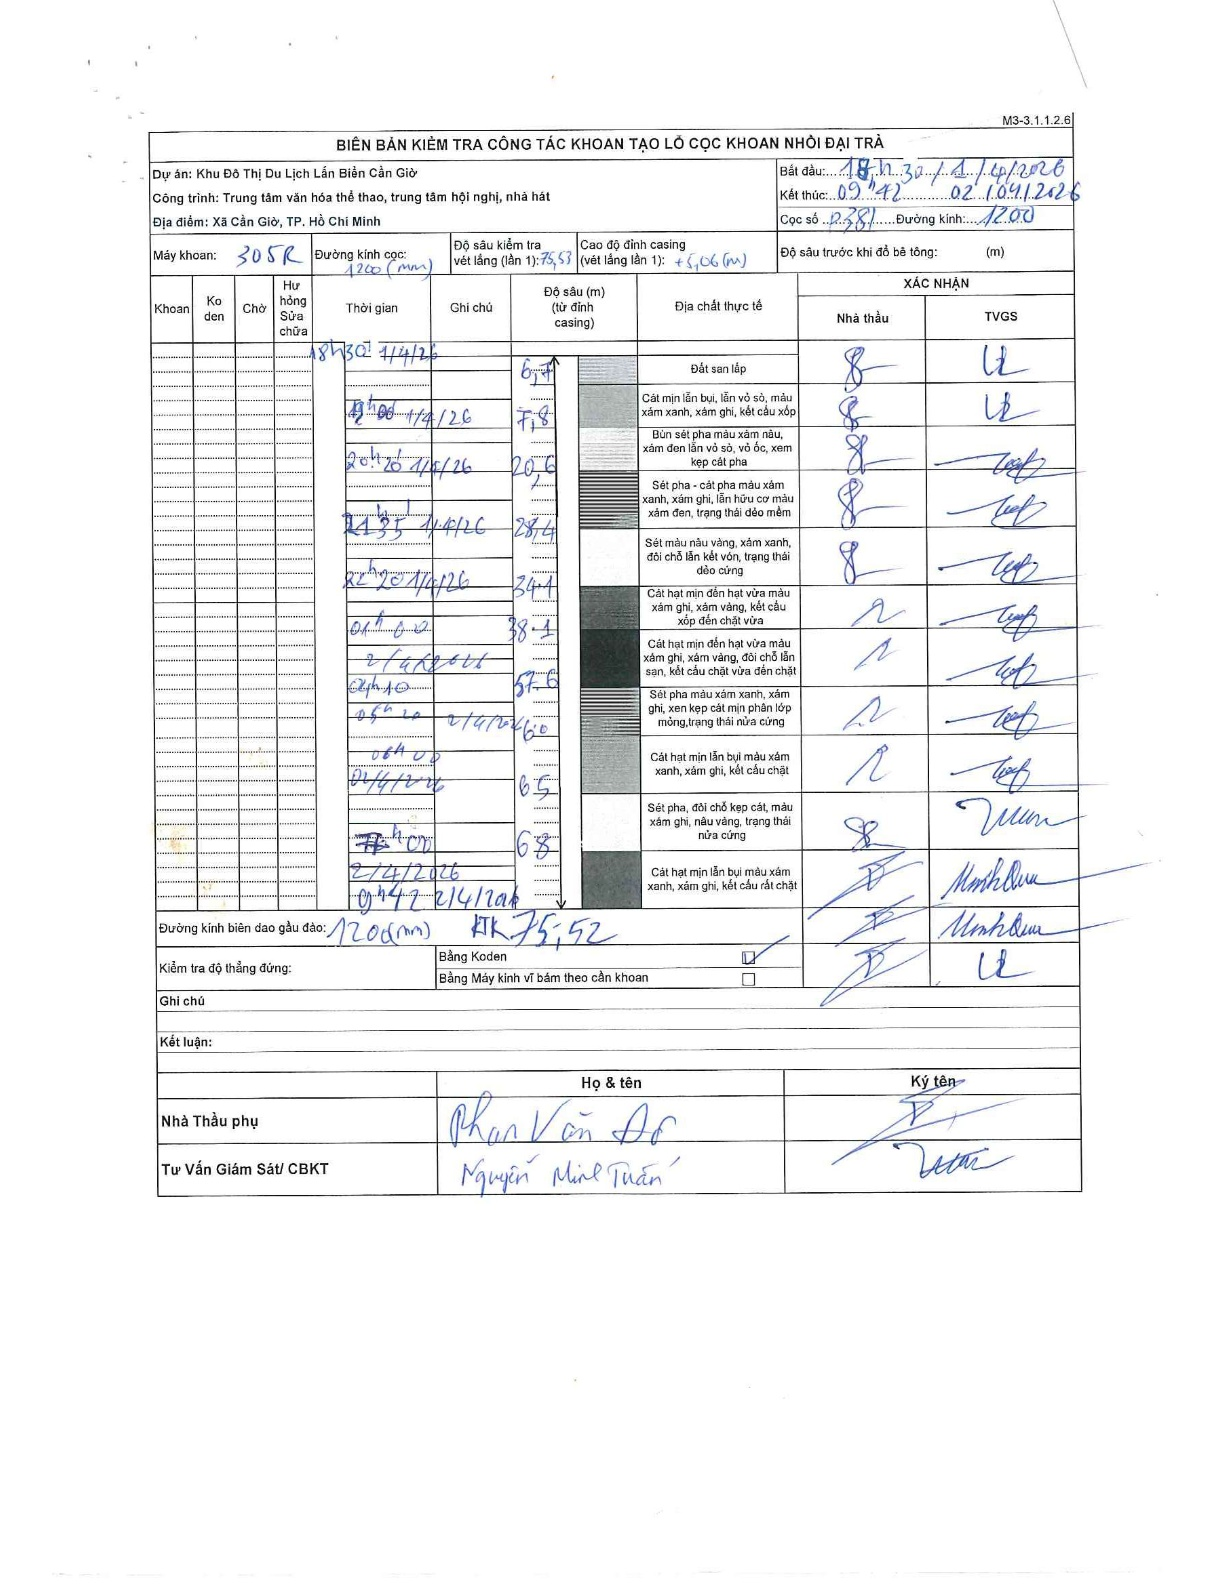 M3-3.1.1.2.6
BIÊN BẢN KIỂM TRA CÔNG TÁC KHOAN TẠO LỖ CỌC KHOAN NHỒI ĐẠI TRÀ
Dự án: Khu Đô Thị Du Lịch Lấn Biển Cần Giờ
Công trình: Trung tâm văn hóa thể thao, trung tâm hội nghị, nhà hát
Địa điểm: Xã Cần Giờ, TP. Hồ Chí Minh
Bắt đầu: 18h30/1/4/2026
Kết thúc: 09h42 02/04/2026
Cọc số P381 Đường kính: 1200
Máy khoan: 305R
Đường kính cọc: 1200 (mm)
Độ sâu kiểm tra vét lắng (lần 1): 75,53
Cao độ đỉnh casing (vét lắng lần 1): +5,06 (m)
Độ sâu trước khi đổ bê tông: (m)
Khoan Ko den Chờ Hư hỏng Sửa chữa Thời gian Ghi chú Độ sâu (m) (từ đỉnh casing) Địa chất thực tế XÁC NHẬN
Nhà thầu TVGS
18h30 1/4/26
6,7 Đất san lấp
1/4/26 7,8
Cát mịn lẫn bụi, lẫn vỏ sò, màu
xám xanh, xám ghi, kết cấu xốp
20h20 1/4/26 20,6
Bùn sét pha màu xám nâu,
xám đen lẫn vỏ sò, vỏ ốc, xem
kẹp cát pha
21h35 1/4/26 28,4
Sét pha - cát pha màu xám
xanh, xám ghi, lẫn hữu cơ màu
xám đen, trạng thái dẻo mềm
22h20 1/4/26 34.1
Sét màu nâu vàng, xám xanh,
đôi chỗ lẫn kết vón, trạng thái
dẻo cứng
01h00 38.1
Cát hạt mịn đến hạt vừa màu
xám ghi, xám vàng, kết cấu
xốp đến chặt vừa
2/4/2026
04h10 57.6
Cát hạt mịn đến hạt vừa màu
xám ghi, xám vàng, đôi chỗ lẫn
sạn, kết cấu chặt vừa đến chặt
05h20 2/4/26 60
Sét pha màu xám xanh, xám
ghi, xen kẹp cát mịn phân lớp
mỏng,trạng thái nửa cứng
06h00
02/4/2026 65
Cát hạt mịn lẫn bụi màu xám
xanh, xám ghi, kết cấu chặt
h00 68
Sét pha, đôi chỗ kẹp cát, màu
xám ghi, nâu vàng, trạng thái
nửa cứng
2/4/2026
9h42 2/4/2026
Cát hạt mịn lẫn bụi màu xám
xanh, xám ghi, kết cấu rất chặt
Minh Qua
Đường kính biên dao gầu đào: 1200(mm) KTK 75,52
Kiểm tra độ thẳng đứng:
Bằng Koden
Bằng Máy kinh vĩ bám theo cần khoan
Ghi chú
Kết luận:
Họ & tên Ký tên
Nhà Thầu phụ Phan Văn
Tư Vấn Giám Sát/ CBKT Nguyễn Minh Tuấn